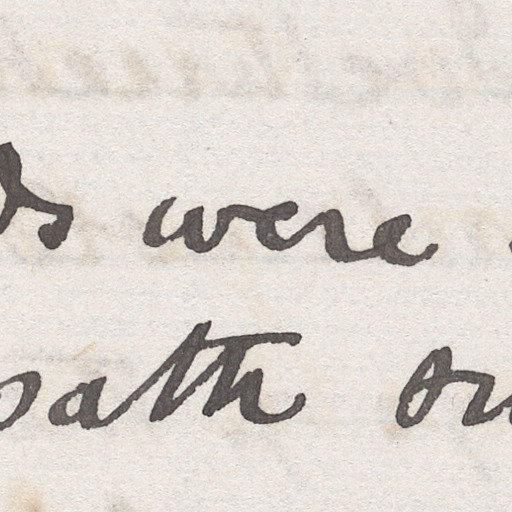 ds were
path on